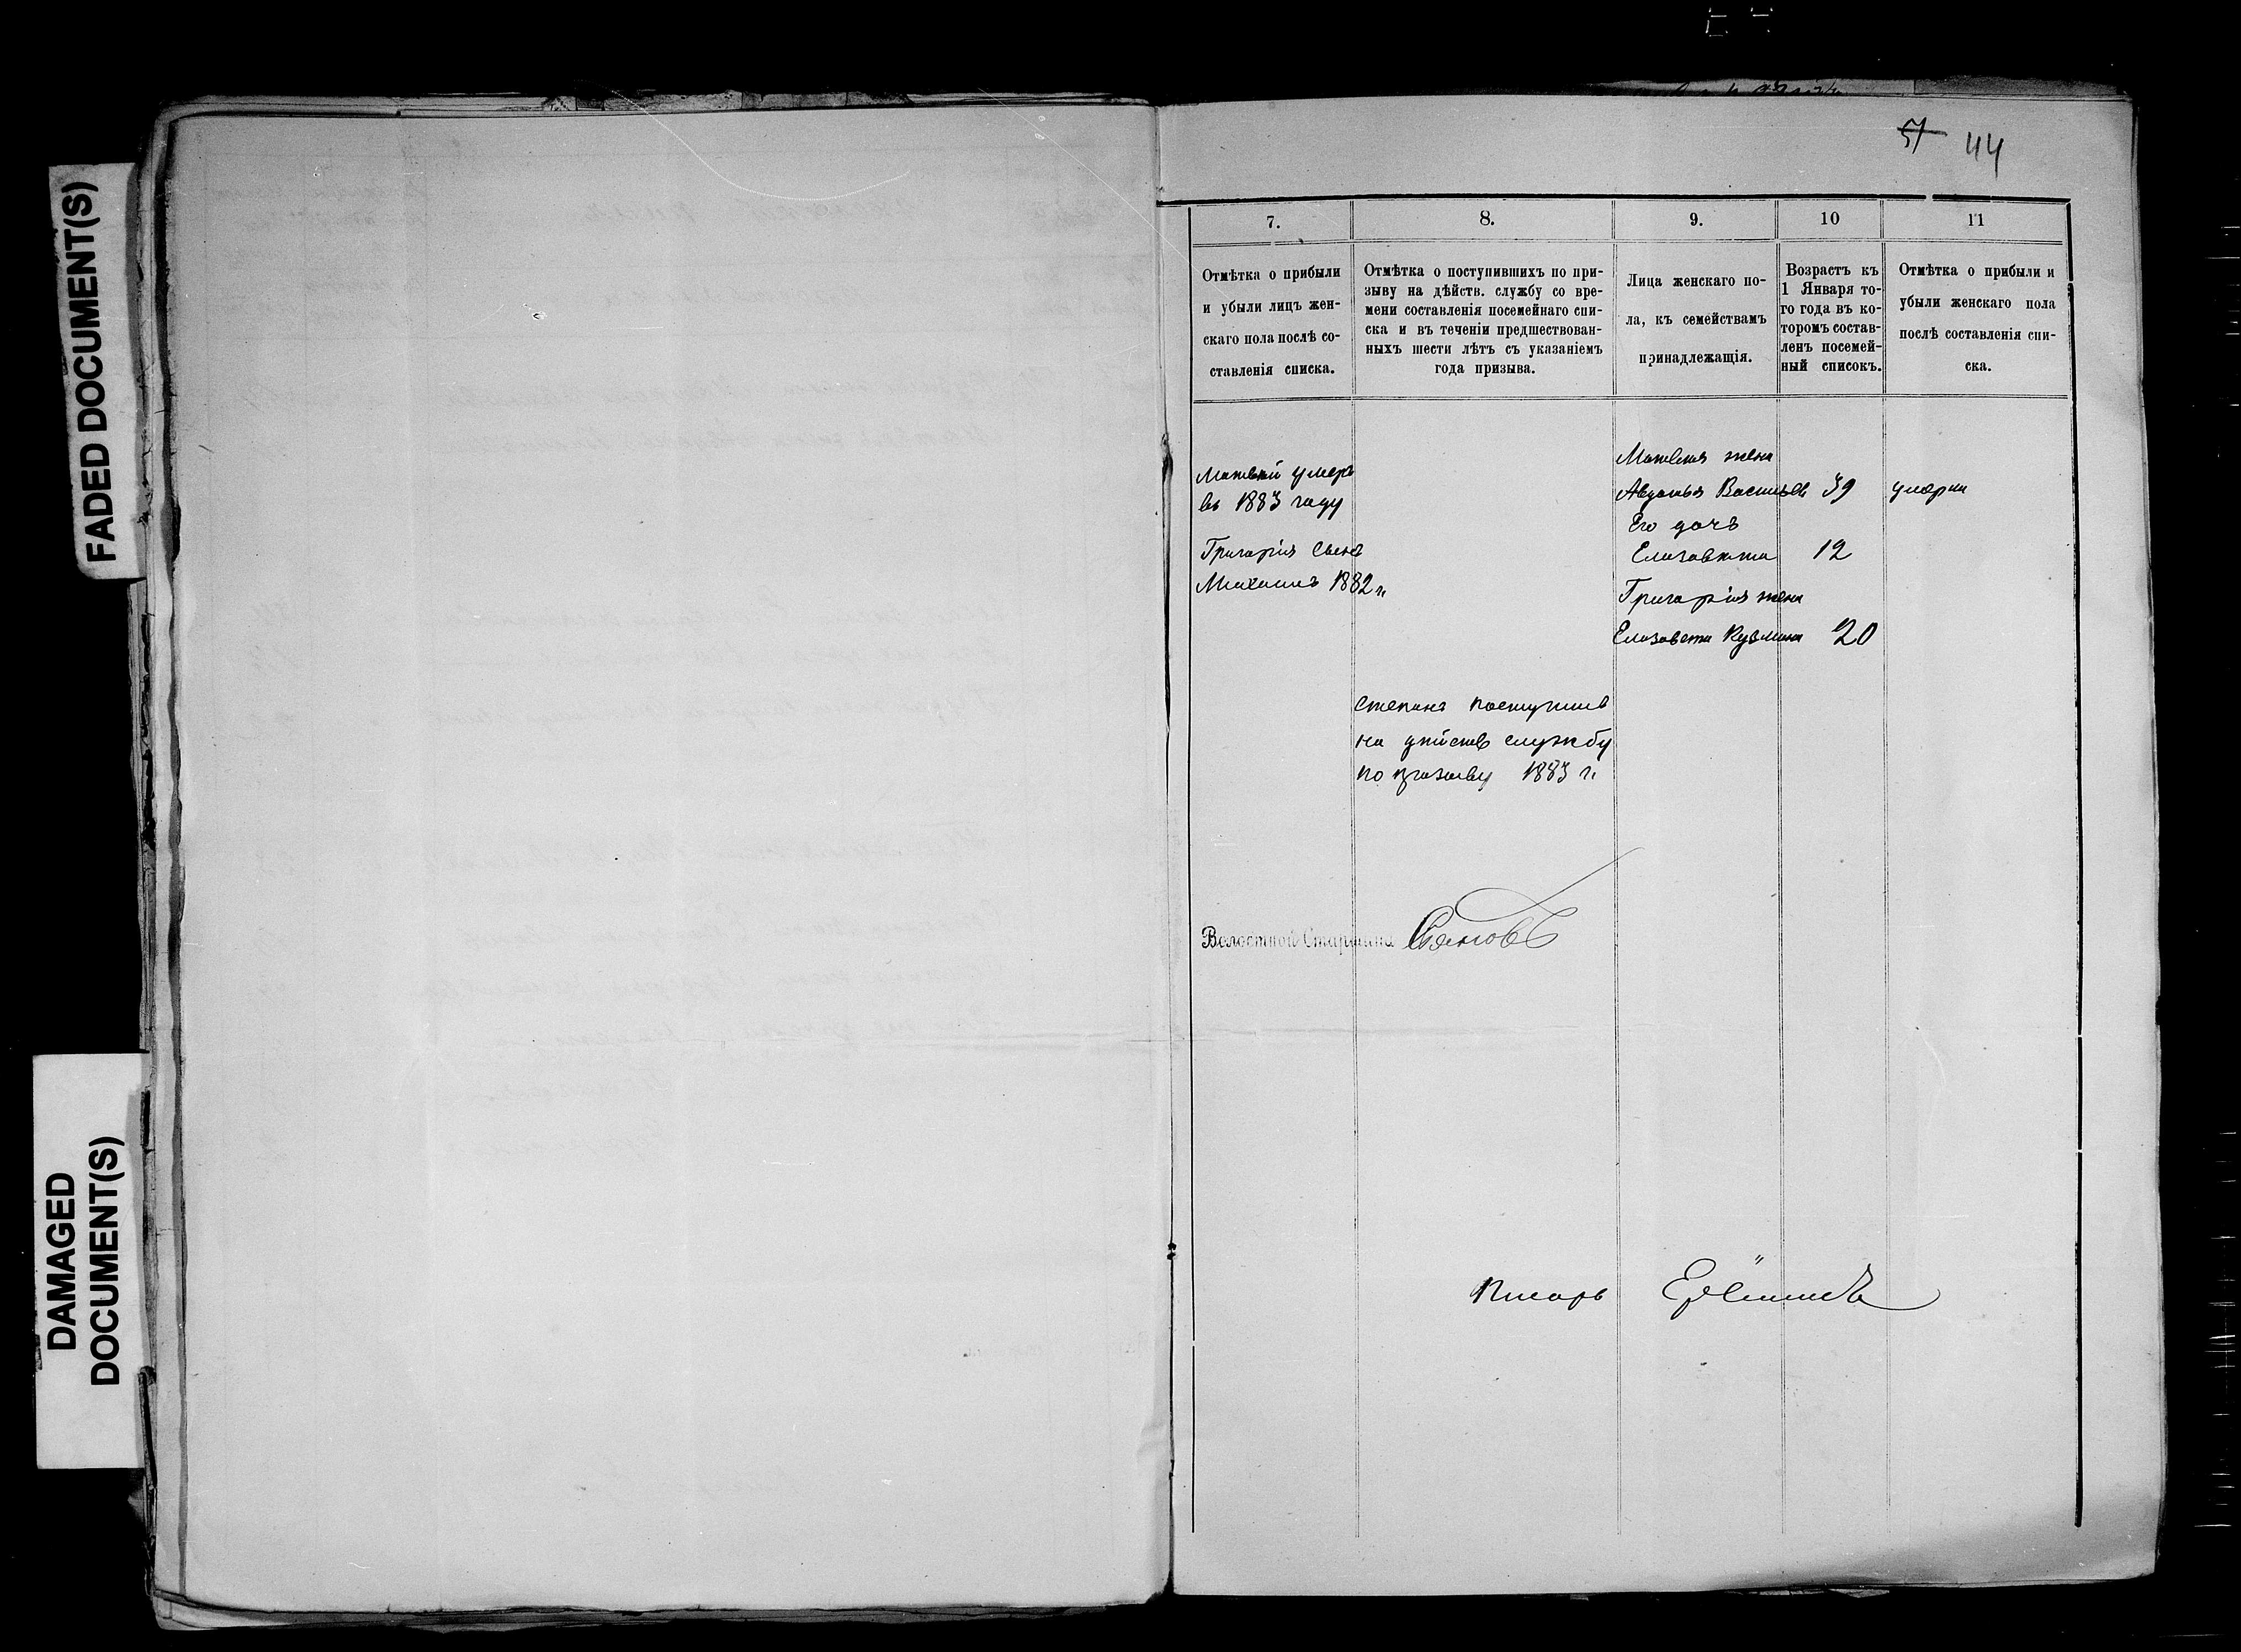 FADED DOCUMENT(S)
DAMAGED
DOCUMENT(S)
57 44
7.
Отмѣтка о прибыли
и убыли лицъ жен-
скаго пола послѣ со-
ставленія списка.
8.
Отмѣтка о поступившихъ по при-
зыву на дѣйств. службу со вре-
мени составленія посемейнаго спи-
ска и въ теченіи предшествован-
ныхъ шести лѣтъ съ указаніемъ
года призыва.
9.
Лица женскаго по-
ла, къ семействамъ
принадлежащія.
10
Возрастъ къ
1 Января то-
го года въ ко-
торомъ состав-
ленъ посемей-
ный списокъ.
11
Отмѣтка о прибыли и
убыли женскаго пола
послѣ составленія спи-
ска.
Матвѣй умеръ
въ 1883 году
Григорія Сынъ
Михаилъ 1882 г.
Матвѣя жена
Авдотья Васильев 39 умерла
Его дочь
Елизавета 12
Григорія жена
Елизавета Кузмина 20
Степанъ поступилъ
на дѣйств службу
по призыву 1883 г.
Волостной Старшина
Писарь